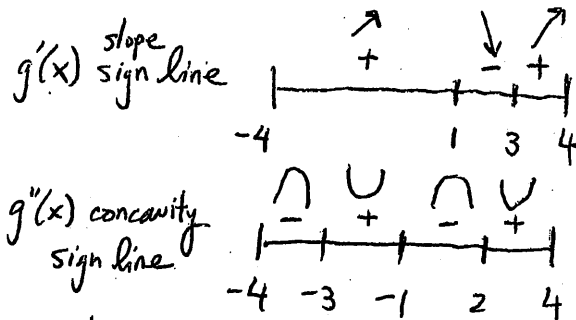 g'(x) slope
sign line
+ - +
-4 1 3 4
g"(x) concavity
sign line
- + - +
-4 -3 -1 2 4